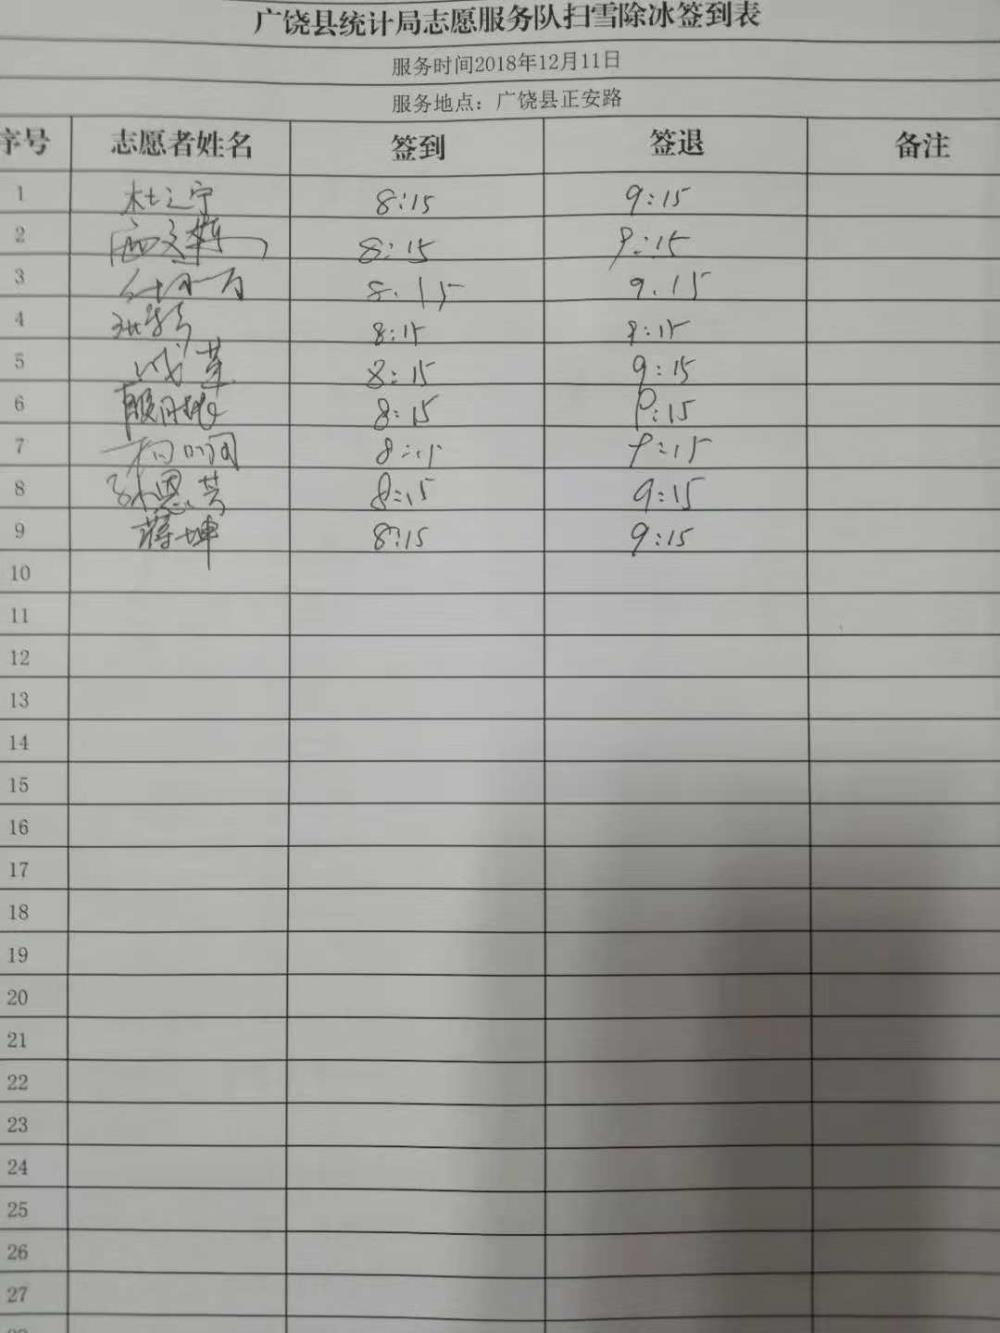 广饶县统计局志愿服务队扫雪除冰签到表
服务时间2018年12月11日
服务地点：广饶县正安路
序号 志愿者姓名 签到 签退 备注
1 杜之宁 8:15 9:15
2 8:15 9:15
3 8.15 9.15
4 8:15 9:15
5 8:15 9:15
6 8:15 9:15
7 8:15 9:15
8 孙恩芸 8:15 9:15
9 蒋坤 8:15 9:15
10
11
12
13
14
15
16
17
18
19
20
21
22
23
24
25
26
27